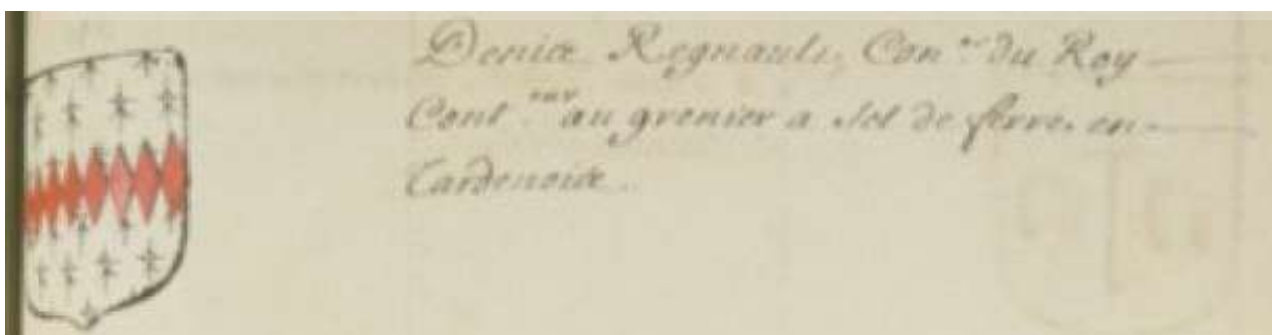 Denice Regnault, Con.er du Roy
Cont.eur au grenier a sel de ferre en
Tardenoice